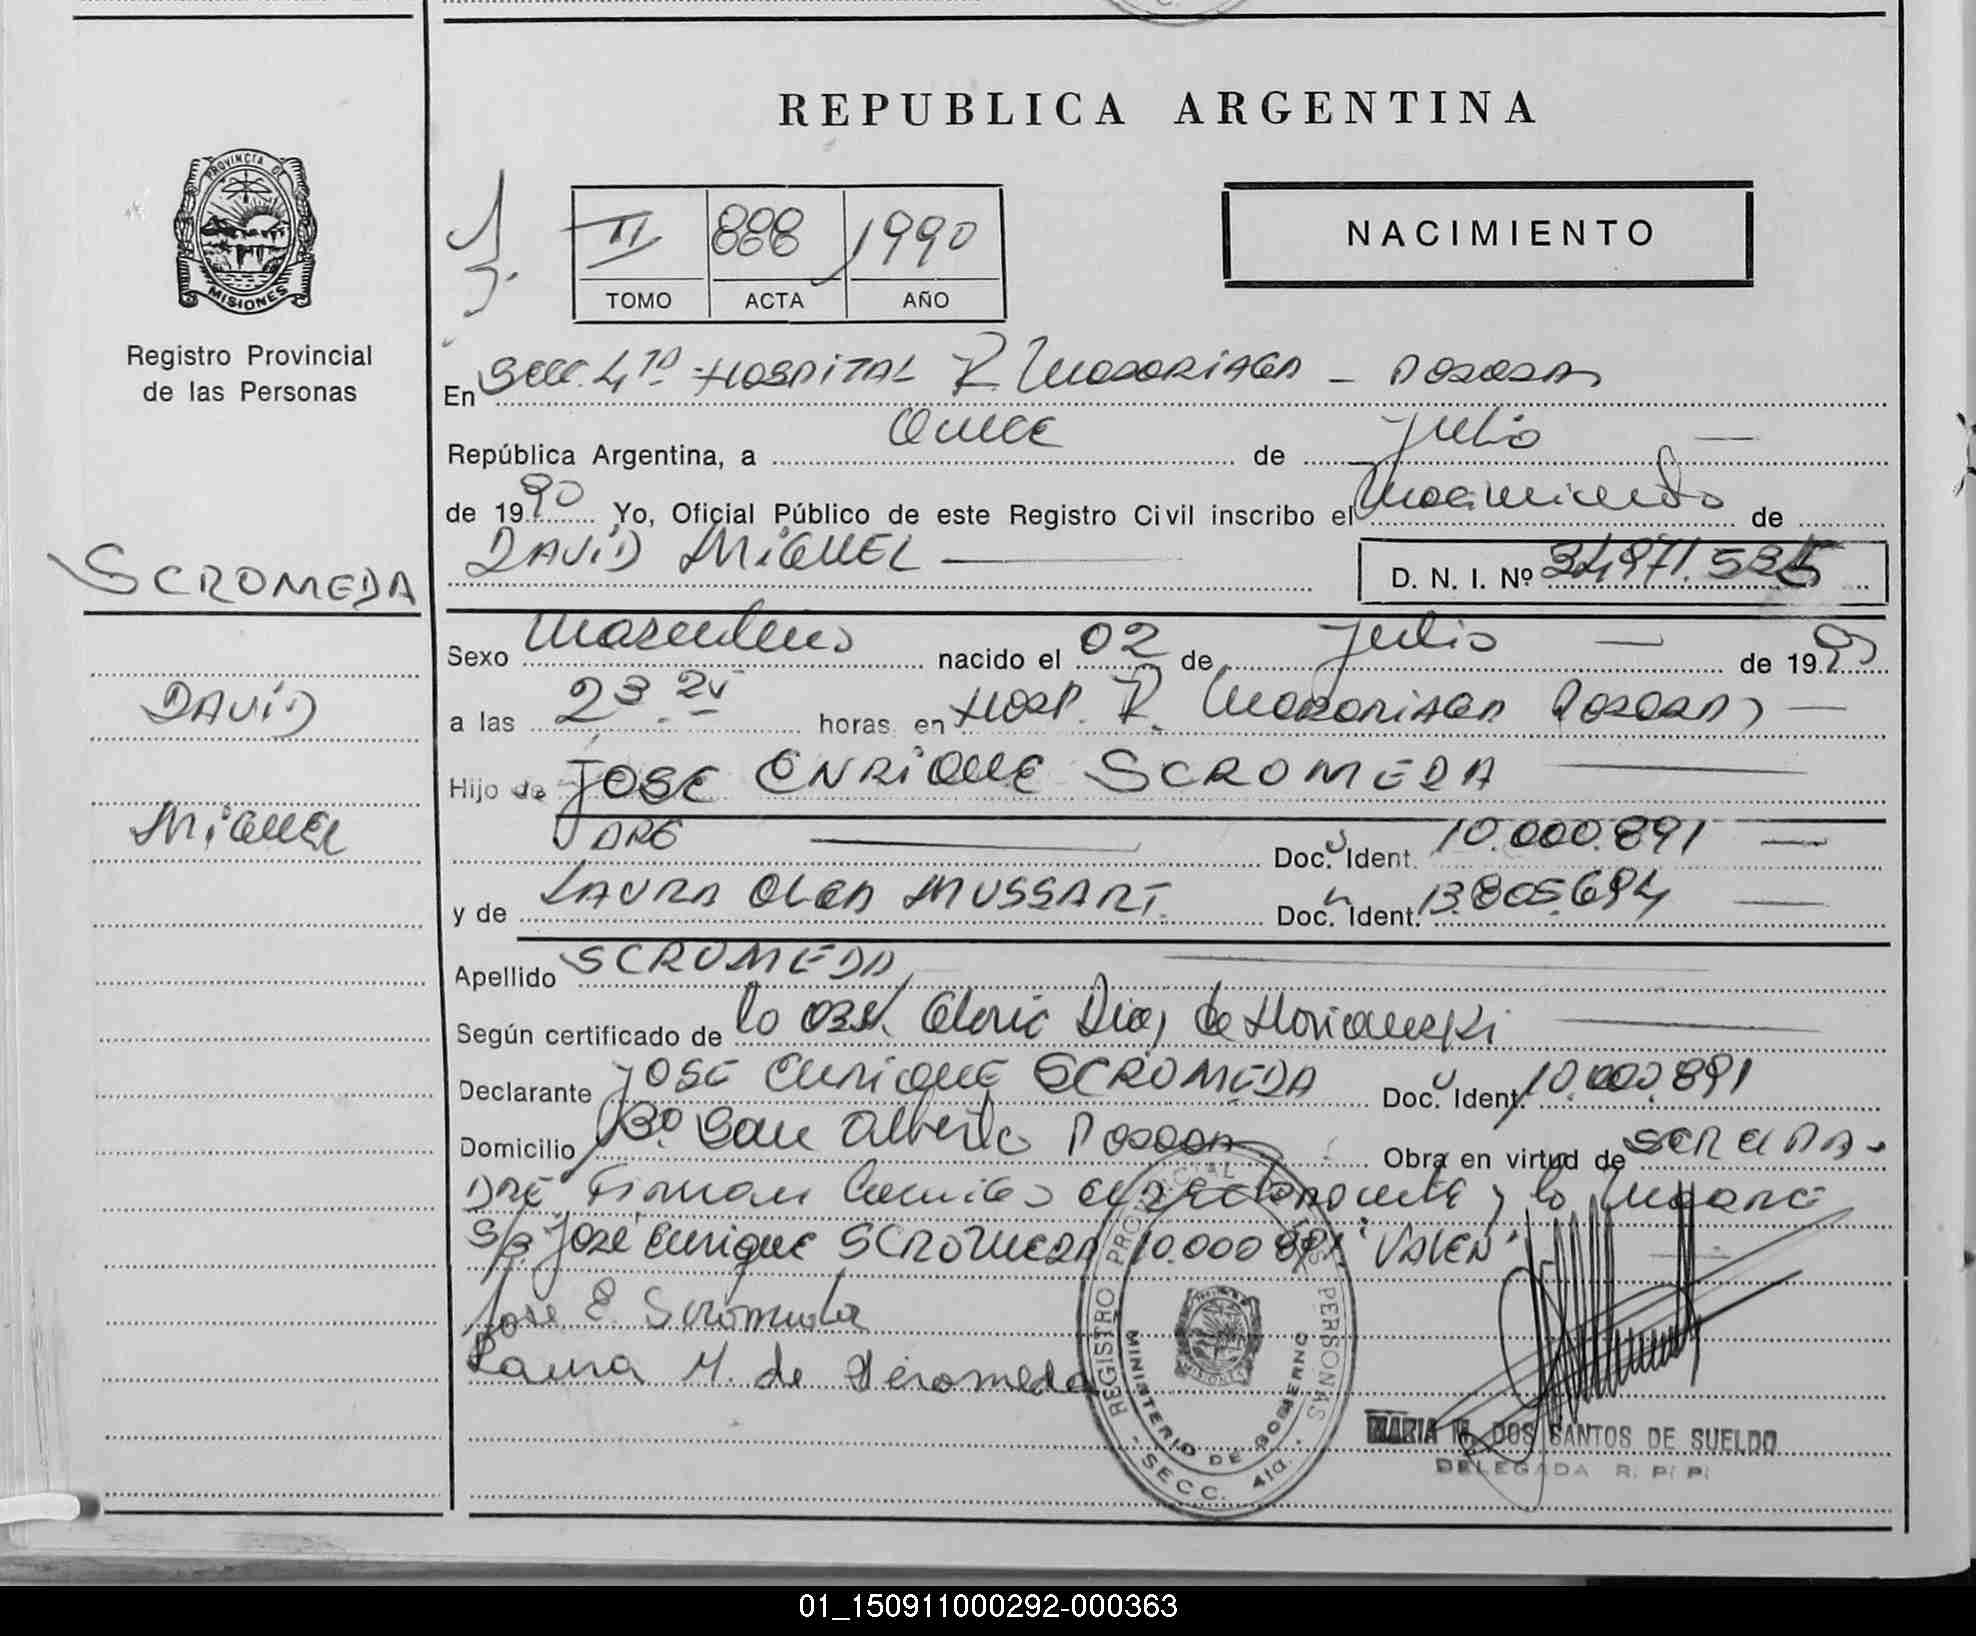 REPUBLICA ARGENTINA
PROVINCIA DE
MISIONES
Registro Provincial
de las Personas
II 888 1990
TOMO ACTA AÑO
NACIMIENTO
En Secc. 4ta Hospital R. Madariaga - Posadas
República Argentina, a Once de Julio
de 1990 Yo, Oficial Público de este Registro Civil inscribo el Nacimiento de
DAVID MIGUEL D. N. I. Nº
SCROMEDA
DAVID
MIGUEL
Sexo Masculino nacido el 02 de Julio de 1990
a las 23. horas en Hosp. R. Madariaga Posadas
Hijo de JOSE ENRIQUE SCROMEDA
ARG Doc. Ident. 10.000.891
y de LAURA OLGA MUSSART Doc. Ident. 13.805.694
Apellido SCROMEDA
Según certificado de la Obst. Gloria Diaz de
Declarante JOSE Enrique SCROMEDA Doc. Ident. 10.000.891
Domicilio Bº San Alberto Posadas Obra en virtud de
Firman y la Madre
S/B José Enrique SCROMEDA 10.000.891 "VALEN"
Jose E. Scromeda
Laura M. de Scromeda
REGISTRO PROVINCIAL DE LAS PERSONAS
MINISTERIO DE GOBIERNO
MISIONES
- SECC. 4ta. -
MARIA M. DOS SANTOS DE SUELDO
DELEGADA R. P. P.
01_150911000292-000363